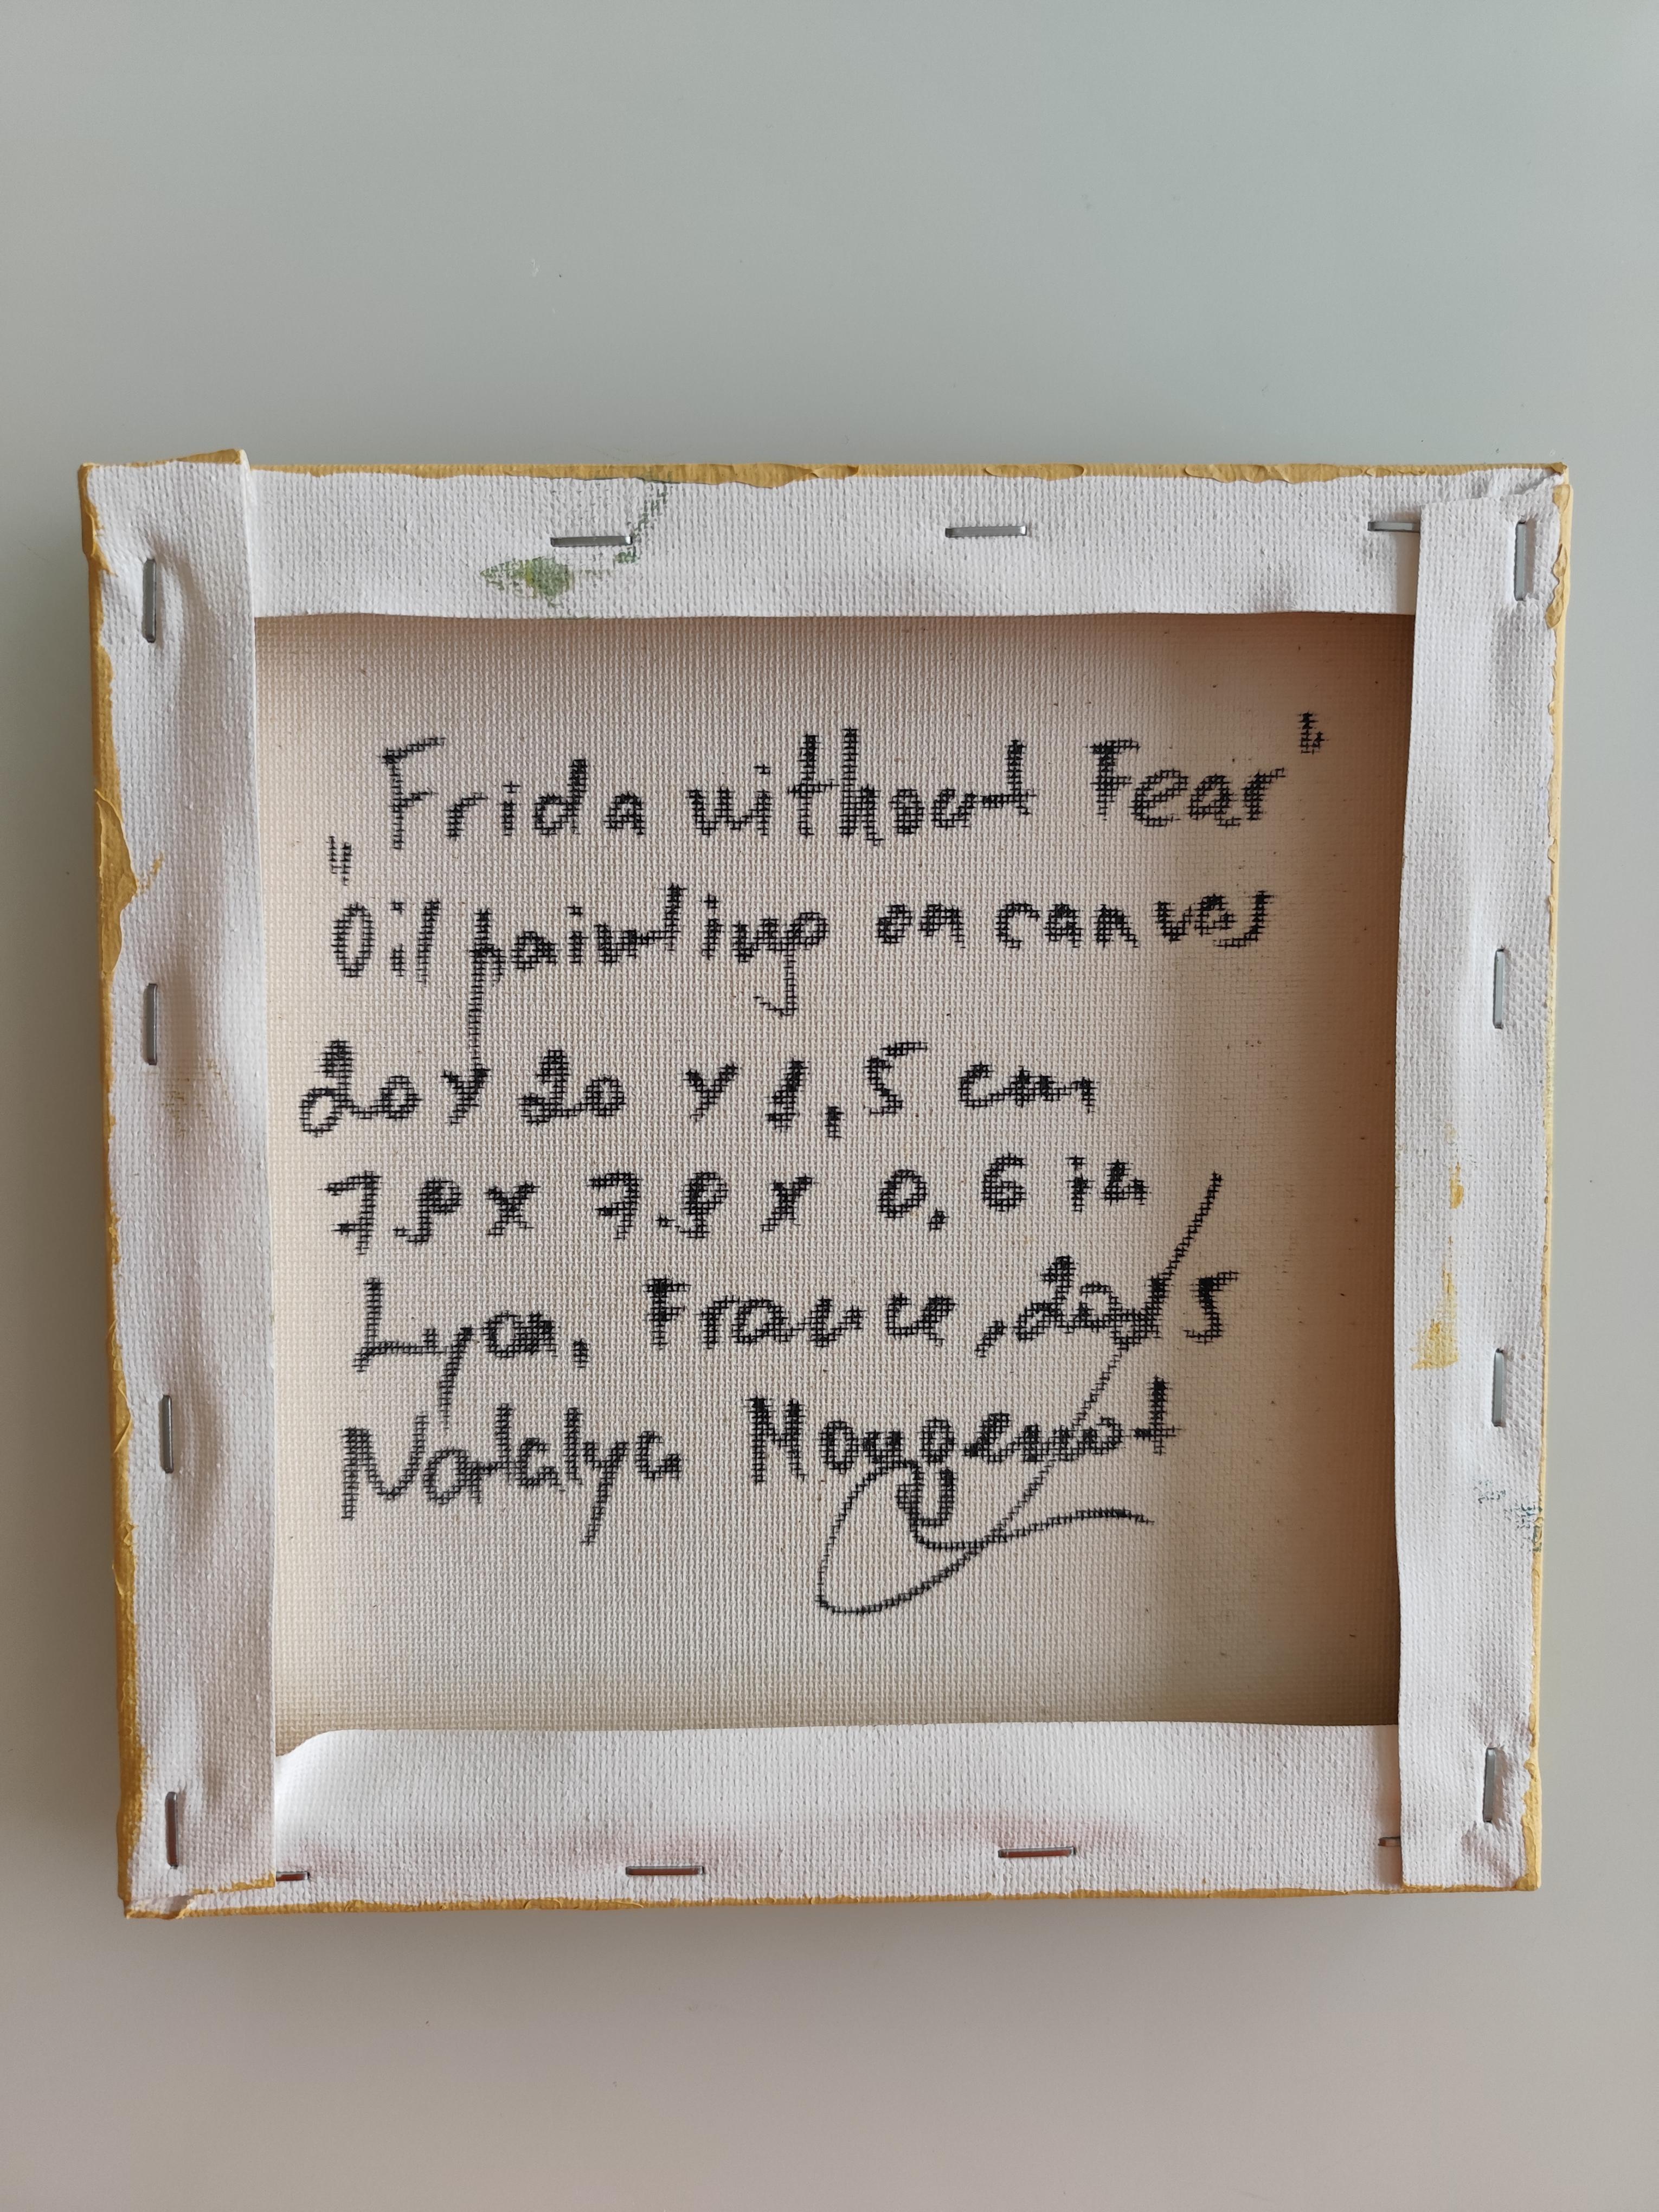 „Frida without Fear"
Oil painting on canvas
20 x 20 x 1,5 cm
7.9 x 7.9 x 0,6 in
Lyon, France, 2025
Natalya Mougenot